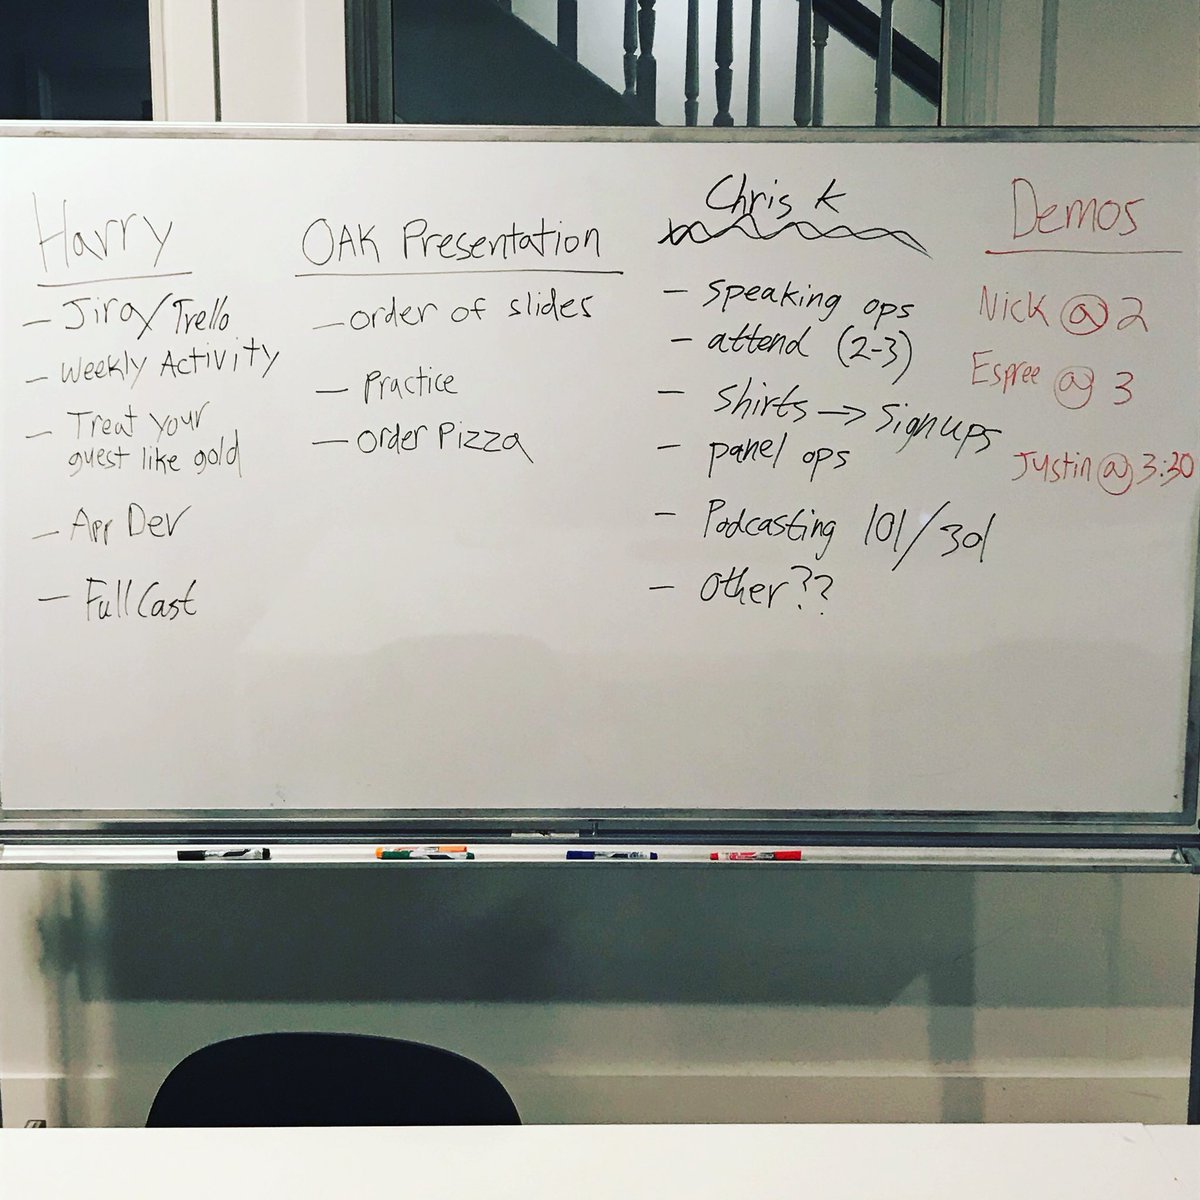 Harry
- Jira/Trello
- Weekly Activity
- Treat your
guest like gold
- App Dev
- Full Cast
OAK Presentation
- order of slides
- Practice
- order Pizza
Chris K
- speaking ops
- attend (2-3)
- shirts → Sign ups
- panel ops
- Podcasting 101/301
- Other??
Demos
Nick @ 2
Espree @ 3
Justin @ 3:30